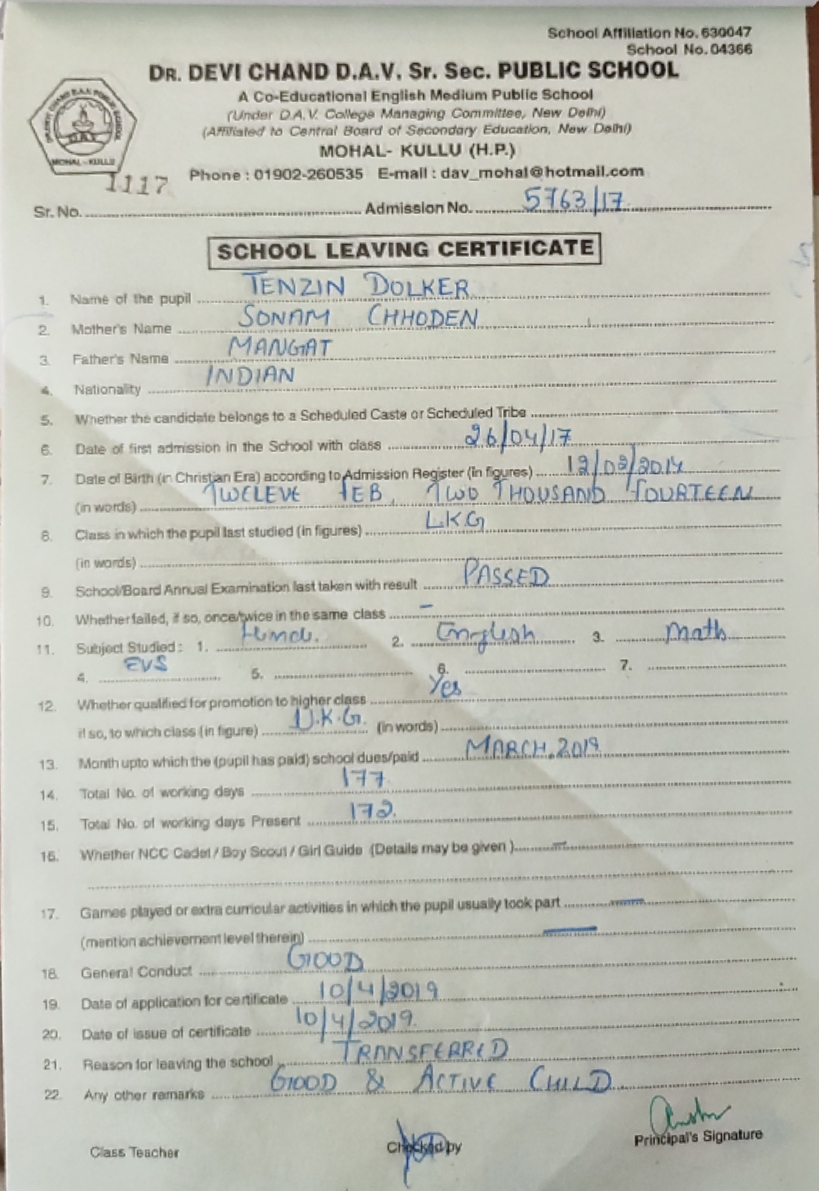 School Affiliation No. 630047
School No. 04366
DR. DEVI CHAND D.A.V. Sr. Sec. PUBLIC SCHOOL
A Co-Educational English Medium Public School
(Under D.A.V. College Managing Committee, New Delhi)
(Affiliated to Central Board of Secondary Education, New Delhi)
MOHAL- KULLU (H.P.)
MOHAL - KULLU
Phone : 01902-260535 E-mail : dav_mohal@hotmail.com
Sr. No. 1117 Admission No. 5763/17
SCHOOL LEAVING CERTIFICATE
1. Name of the pupil TENZIN DOLKER
2. Mother's Name SONAM CHHODEN
3. Father's Name MANGAT
4. Nationality INDIAN
5. Whether the candidate belongs to a Scheduled Caste or Scheduled Tribe
6. Date of first admission in the School with class 26/04/17
7. Date of Birth (in Christian Era) according to Admission Register (in figures) 12/02/2014
(in words) TWELEVE FEB, TWO THOUSAND FOURTEEN
8. Class in which the pupil last studied (in figures) LKG
(in words)
9. School/Board Annual Examination last taken with result PASSED
10. Whether failed, if so, once/twice in the same class –
11. Subject Studied : 1. Hindi. 2. English 3. Math
4. EVS 5. 6. 7.
12. Whether qualified for promotion to higher class Yes
if so, to which class (in figure) U.K.G. (in words)
13. Month upto which the (pupil has paid) school dues/paid MARCH, 2019
14. Total No. of working days 177
15. Total No. of working days Present 172.
16. Whether NCC Cadet / Boy Scout / Girl Guide (Details may be given ) –
17. Games played or extra curricular activities in which the pupil usually took part –
(mention achievement level therein) –
18. General Conduct GOOD
19. Date of application for certificate 10/4/2019
20. Date of issue of certificate 10/4/2019.
21. Reason for leaving the school TRANSFERRED
22. Any other remarks GOOD & ACTIVE CHILD
Class Teacher Checked by Principal's Signature